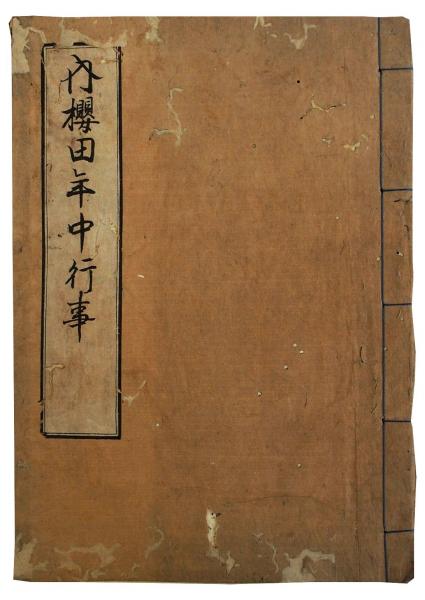 内櫻田年中行事